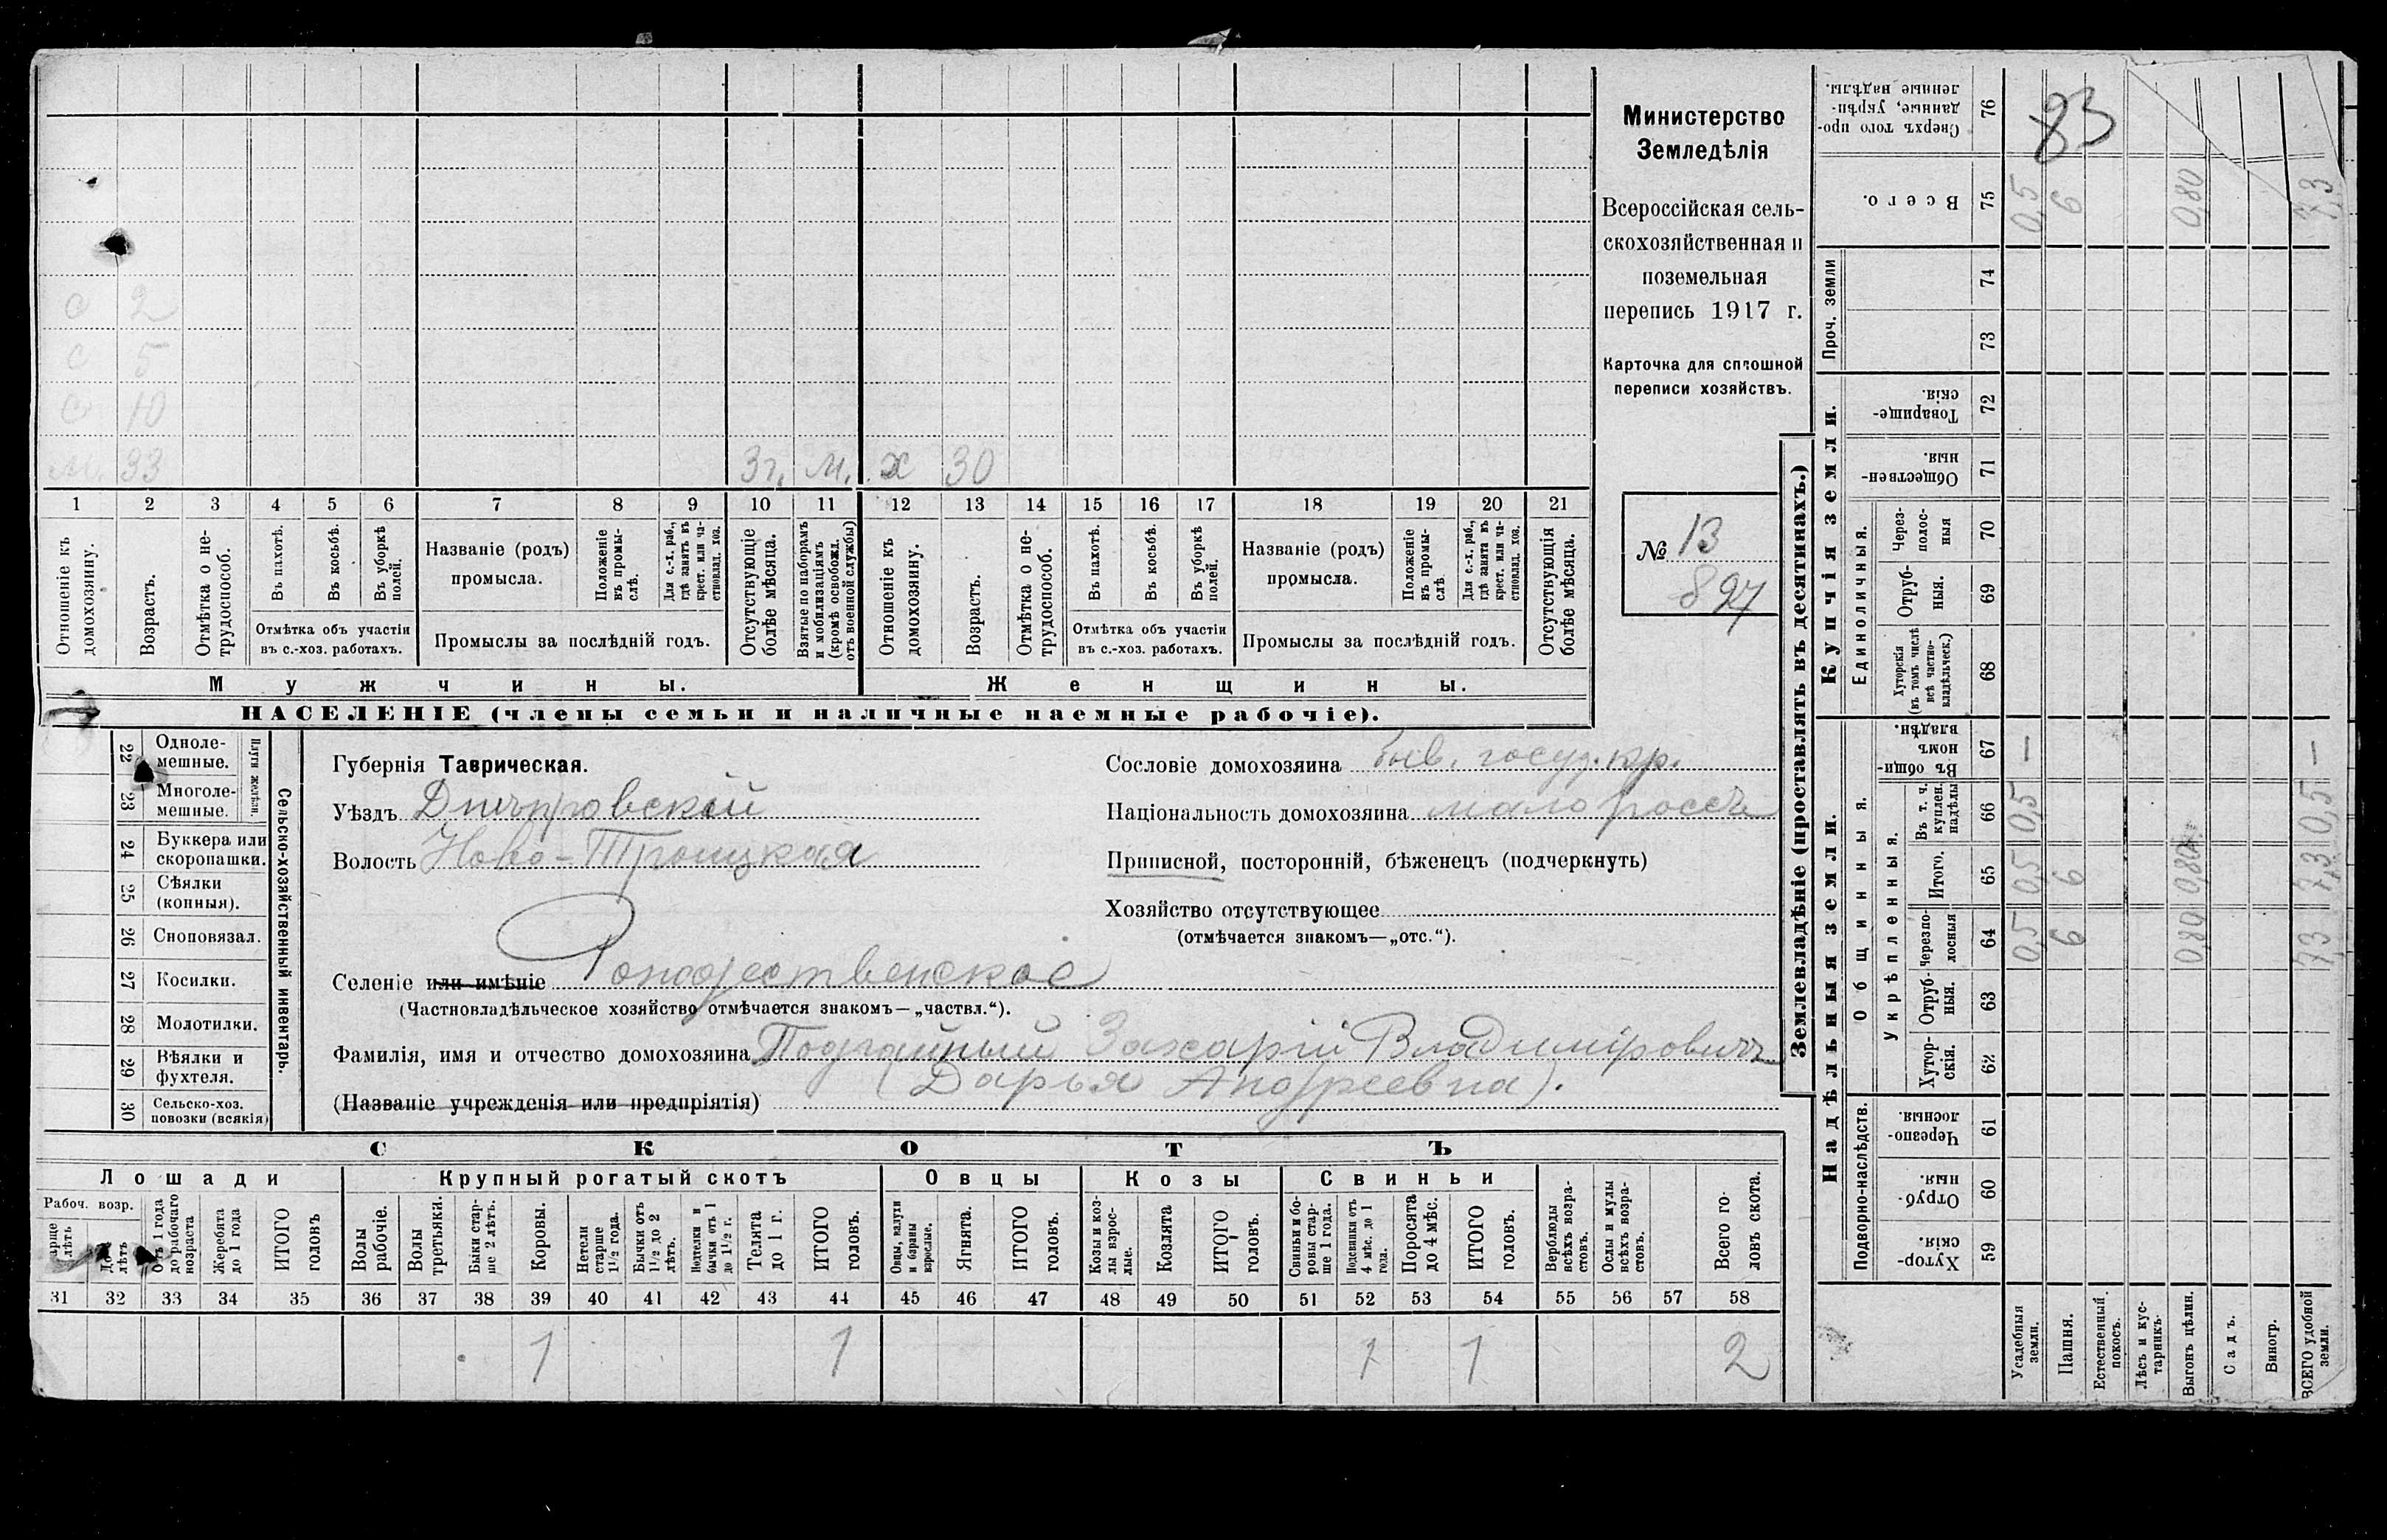 с 2
с 5
с 10
м. 33 3 г. м. х 30
1 2 3 4 5 6 7 8 9 10 11 12 13 14 15 16 17 18 19 20 21
Отношеніе къ домохозяину.
Возрастъ.
Отмѣтка о не-
трудоспособ.
Въ пахотѣ.
Въ косьбѣ.
Въ уборкѣ полей.
Отмѣтка объ участіи
въ с.-хоз. работахъ.
Названіе (родъ)
промысла.
Положеніе въ промы-
слѣ.
Для с.-х. раб.,
гдѣ занятъ въ
крест. или ча-
стновлад. хоз.
Промыслы за послѣдній годъ.
Отсутствующіе
болѣе мѣсяца.
Взятые по наборамъ
и мобилизаціямъ
(кромѣ освобожд.
отъ военной службы)
Отношеніе къ
домохозяину.
Возрастъ.
Отмѣтка о не-
трудоспособ.
Въ пахотѣ.
Въ косьбѣ.
Въ уборкѣ
полей.
Отмѣтка объ участіи
въ с.-хоз. работахъ.
Названіе (родъ)
промысла.
Положеніе
въ промы-
слѣ.
Для с.-х. раб.,
гдѣ занята въ
крест. или ча-
стновлад. хоз.
Промыслы за послѣдній годъ.
Отсутствующія
болѣе мѣсяца.
Мужчины.
Женщины.
НАСЕЛЕНІЕ (члены семьи и наличные наемные рабочіе).
Министерство
Земледѣлія
Всероссійская сель-
скохозяйственная и
поземельная
перепись 1917 г.
Карточка для сплошной
переписи хозяйствъ.
№ 13
897
22 Одноле-
мешные.
23 Многоле-
мешные.
Плуги желѣзн.
24 Буккера или
скоропашки.
25 Сѣялки
(конныя).
26 Сноповязал.
27 Косилки.
28 Молотилки.
29 Вѣялки и
фухтеля.
30 Сельско-хоз.
повозки (всякія)
Сельско-хозяйственный инвентарь.
Губернія Таврическая.
Уѣздъ Днѣпровскій
Волость Ново-Троицкая
Селеніе или имѣніе Рождественское
(Частновладѣльческое хозяйство отмѣчается знакомъ—„частвл.“).
Фамилія, имя и отчество домохозяина Подгайный Захарій Владиміровичъ
(Дарья Андреевна).
(Названіе учрежденія или предпріятія)
Сословіе домохозяина быв. госуд. кр.
Національность домохозяина малороссъ
Приписной, посторонній, бѣженецъ (подчеркнуть)
Хозяйство отсутствующее
(отмѣчается знакомъ—„отс.“).
СКОТЪ
Лошади
Крупный рогатый скотъ
Овцы
Козы
Свиньи
Рабоч. возр.
Отъ 1 года
до рабочаго
возраста
Жеребята
до 1 года
ИТОГО
головъ
Волы
рабочіе.
Волы
третьяки.
Быки стар-
ше 2 лѣтъ.
Коровы.
Нетели
старше
1½ года.
Бычки отъ
1½ до 2
лѣтъ.
Подтелки и
бычки отъ 1
до 1½ г.
Телята
до 1 г.
ИТОГО
головъ.
Овцы, валухи
и бараны
взрослые.
Ягнята.
ИТОГО
головъ.
Козы и коз-
лы взрос-
лые.
Козлята
ИТОГО
головъ.
Свиньи и бо-
ровы стар-
ше 1 года.
Подсвинки отъ
4 мѣс. до 1
года.
Поросята
до 4 мѣс.
ИТОГО
головъ.
Верблюды
всѣхъ возра-
стовъ.
Ослы и мулы
всѣхъ возра-
стовъ.
Всего го-
ловъ скота.
31 32 33 34 35 36 37 38 39 40 41 42 43 44 45 46 47 48 49 50 51 52 53 54 55 56 57 58
1 1 1 1 2
Землевладѣніе (проставлять въ десятинахъ.)
83
Сверхъ того про-
данные, укрѣп-
ленные надѣлы.
76
Всего.
75 0,5 6 0,80 7,3
Проч. земли
74
73
Купчія земли.
Товарище-
скія.
72
Обществен-
ныя.
71
Единоличныя.
Через-
полос-
ныя
70
Отруб-
ныя.
69
Хуторскія
(въ томъ числѣ
всѣ частно-
владѣльческ.)
68
Надѣльныя земли.
Общинныя.
Въ общи-
номъ
владѣн.
67 — —
Укрѣпленныя.
Въ т. ч.
куплен.
надѣлы
66 0,5 0,5
Итого.
65 0,5 6 0,80 7,3
Черезпо-
лосныя
64 0,5 6 0,80 7,3
Отруб-
ныя.
63
Хутор-
скія.
62
Подворно-наслѣдств.
Черезпо-
лосныя.
61
Отруб-
ныя.
60
Хутор-
скія.
59
Усадебныя
земли.
Пашня.
Естественный
покосъ.
Лѣсъ и кус-
тарникъ.
Выгонъ цѣлин.
Садъ.
Виногр.
ВСЕГО удобной
земли.